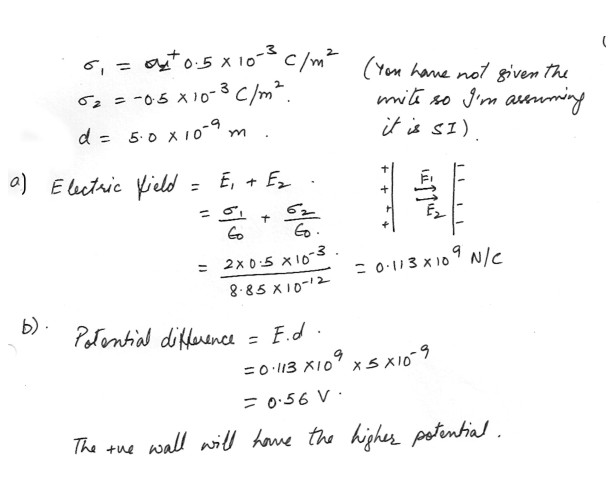 σ₁ = + 0.5 x 10⁻³ C/m²
σ₂ = -0.5 x 10⁻³ C/m².
d = 5.0 x 10⁻⁹ m .
(You have not given the
units so I'm assuming
it is SI).
a) Electric field = E₁ + E₂ .
= σ₁/ϵ₀ + σ₂/ϵ₀.
= 2x0.5 x10⁻³ / 8.85 x10⁻¹² = 0.113 x 10⁹ N/C
+ E₁ -
+ -
+ E₂ -
+ -
b). Potential difference = E.d .
= 0.113 x10⁹ x 5 x10⁻⁹
= 0.56 V.
The +ve wall will have the higher potential.